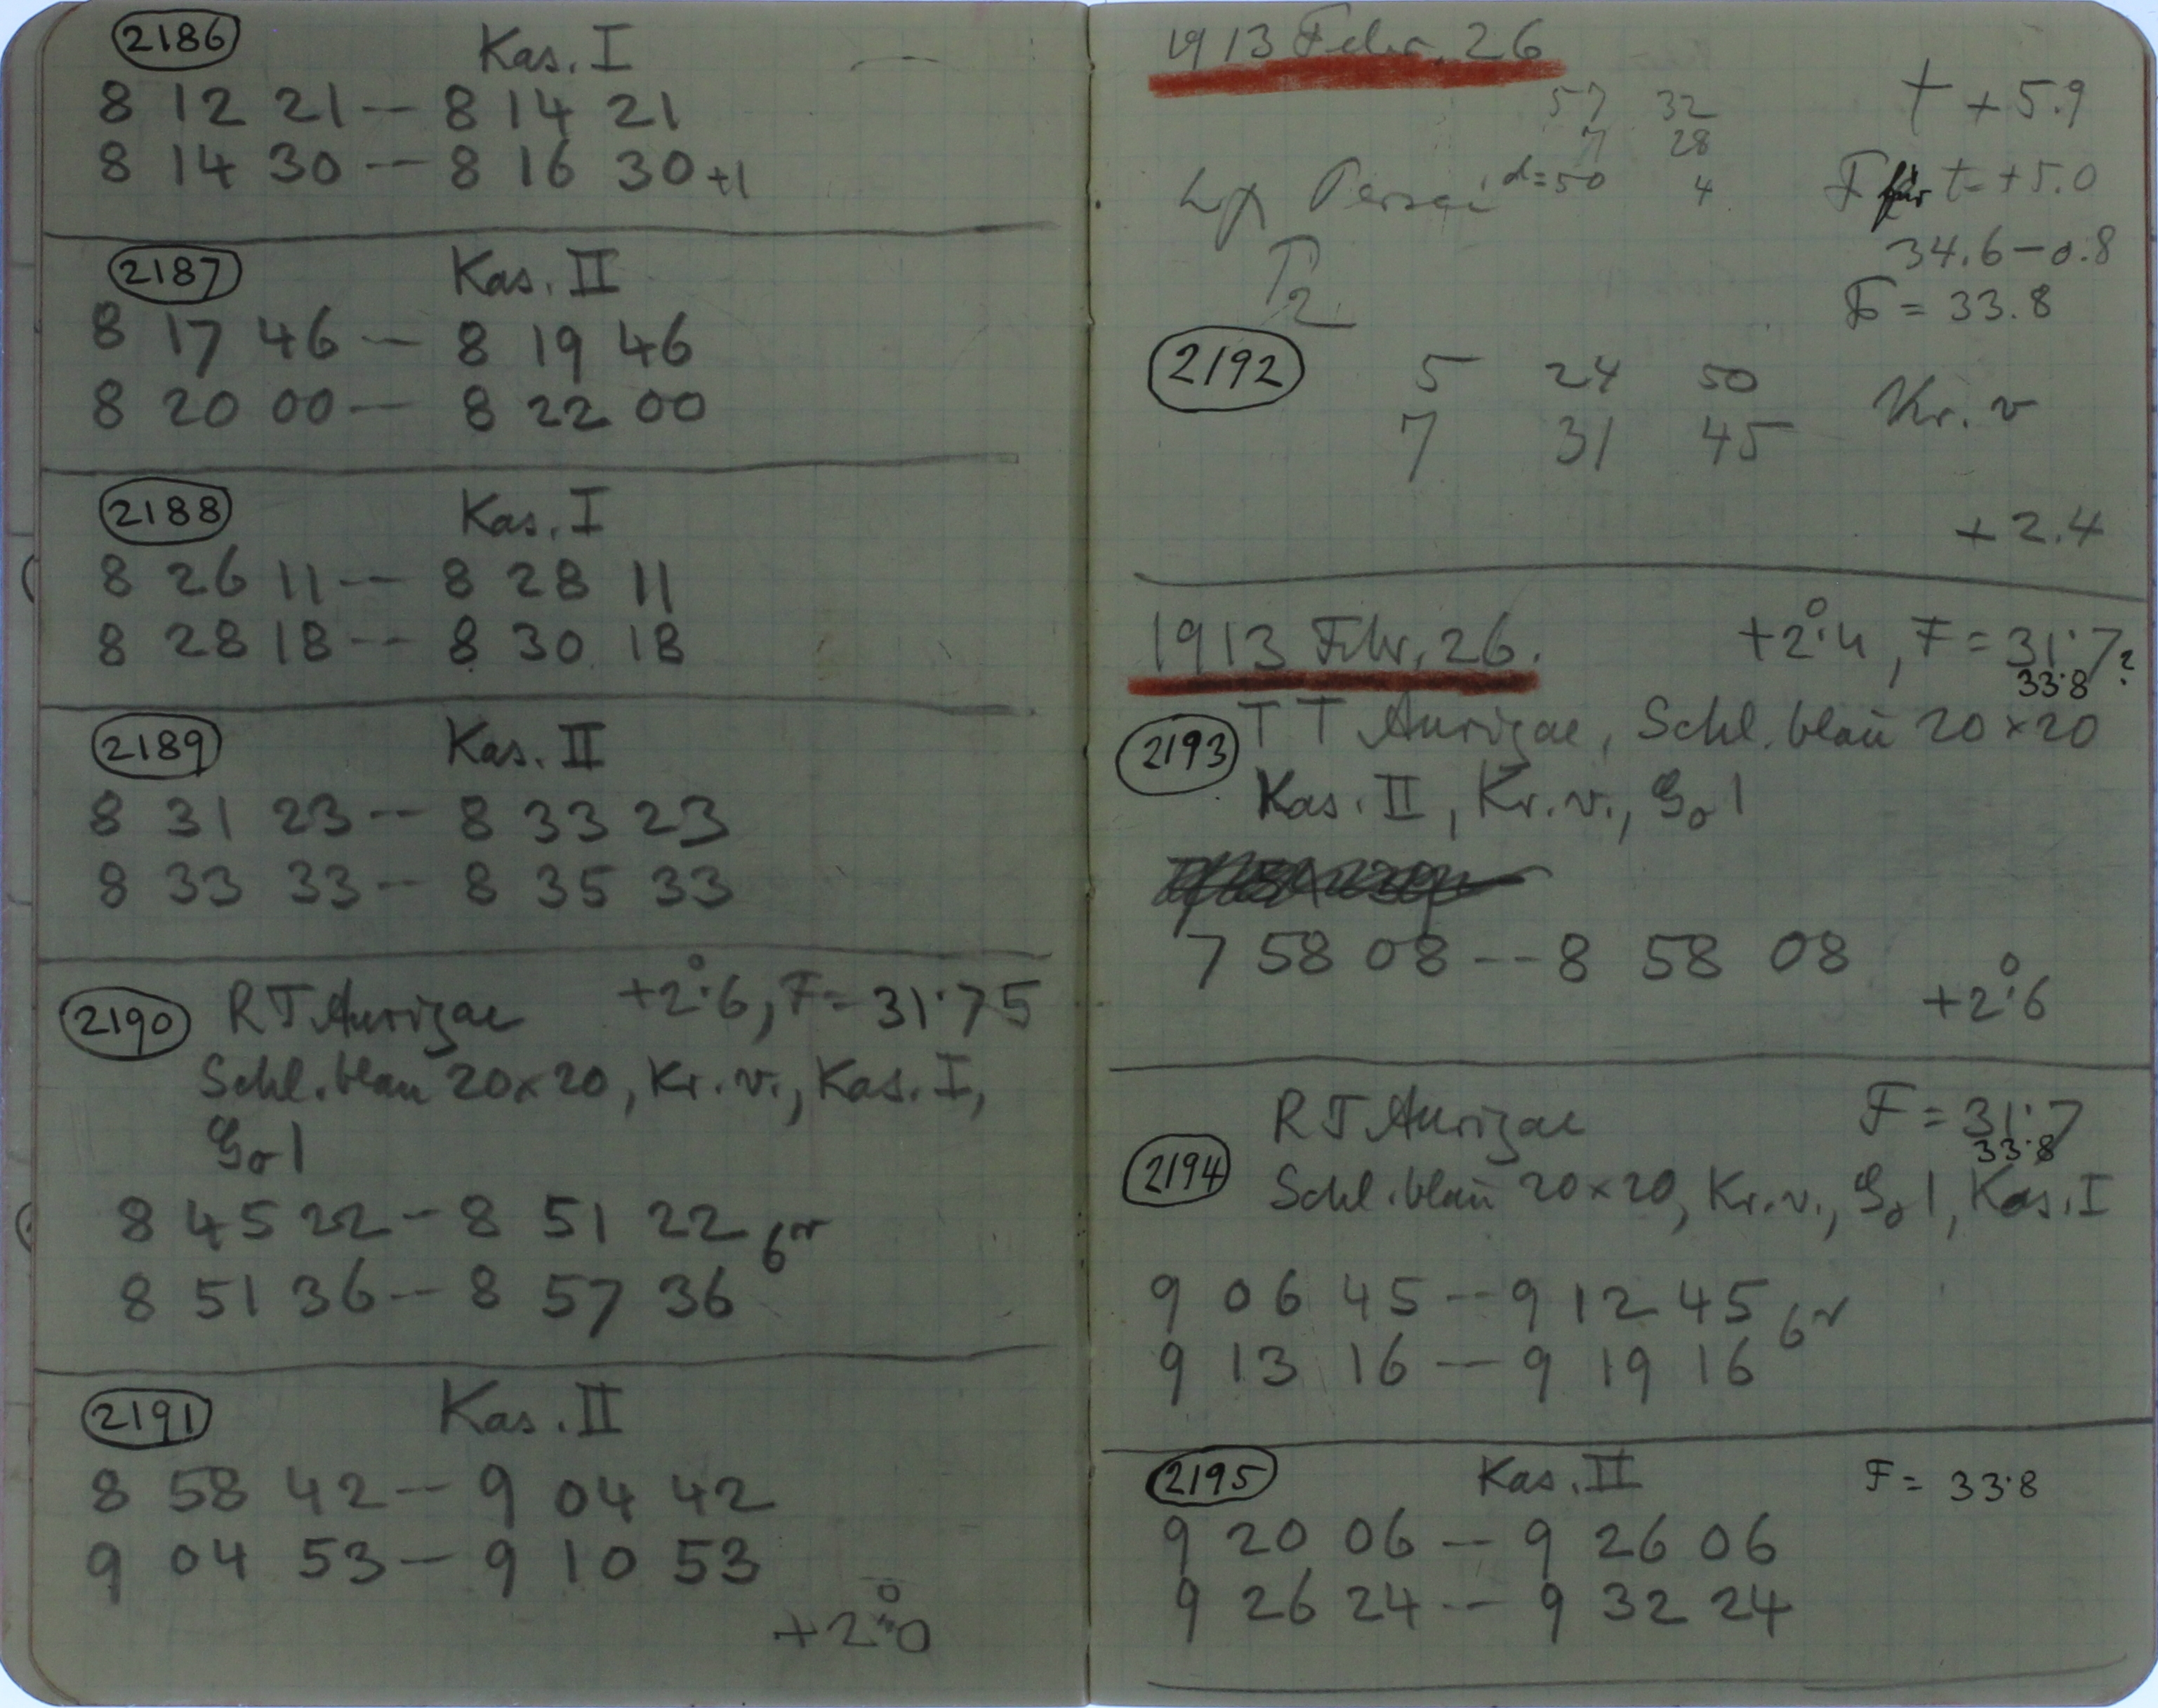 2186 Kas. I
8 12 21 -- 8 14 21
8 14 30 -- 8 16 30 +1
2187 Kas. II
8 17 46 -- 8 19 46
8 20 00 -- 8 22 00
2188 Kas. I
8 26 11 -- 8 28 11
8 28 18 -- 8 30 18
2189 Kas. II
8 31 23 -- 8 33 23
8 33 33 -- 8 35 33
2190 RT Aurigae +2°.6, F = 31.75
Schl. blau 20×20, Kr. v., Kas. I,
8 45 22 -- 8 51 22
8 51 36 -- 8 57 36
2191 Kas. II
8 58 42 -- 9 04 42
9 04 53 -- 9 10 53
+2°.0
1913 Febr. 26
57 32 t +5.9
7 28
Persei d=50 4 F für t=+5.0
34.6-0.8
F = 33.8
2192 5 24 50 Kr. v
7 31 45
+2.4
1913 Febr. 26. +2°.4, F = 31.7?
33.8
2193 TT Aurigae, Schl. blau 20×20
Kas. II, Kr. v.,
7 58 08 -- 8 58 08
+2°.6
RT Aurigae F = 31.7
33.8
2194 Schl. blau 20×20, Kr. v., Kas. I
9 06 45 -- 9 12 45
9 13 16 -- 9 19 16
2195 Kas. II F = 33.8
9 20 06 -- 9 26 06
9 26 24 -- 9 32 24